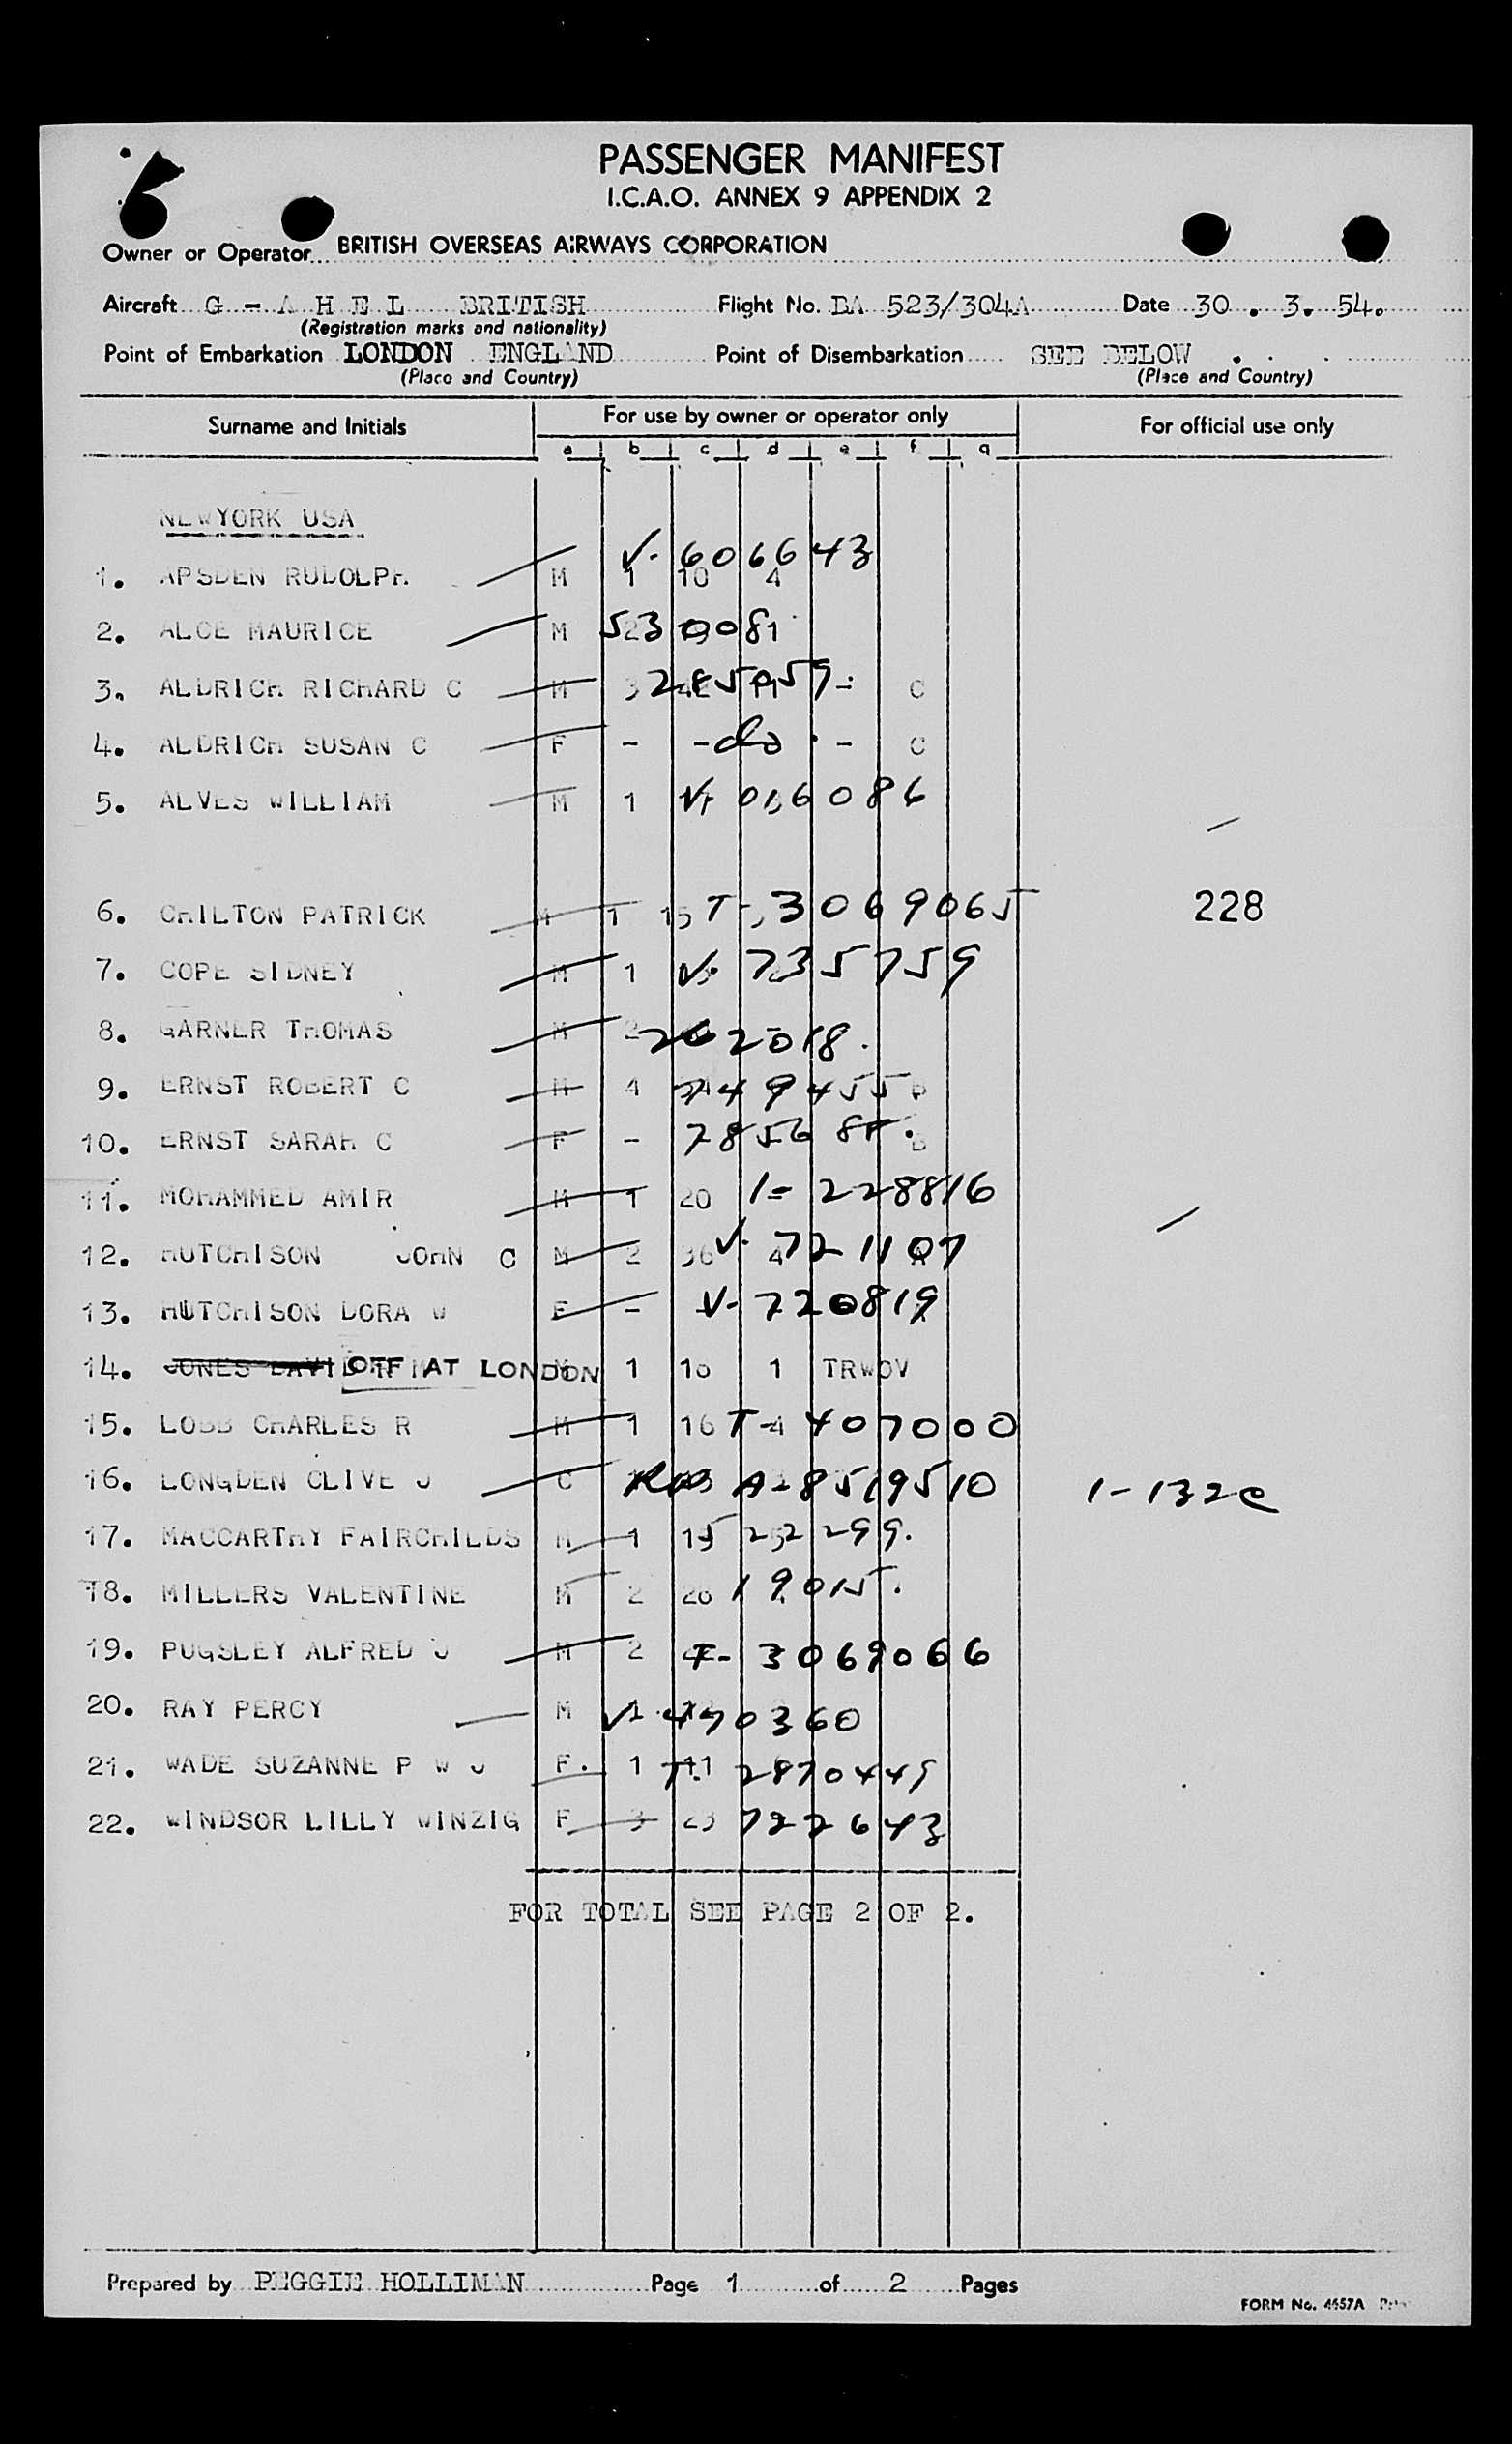 PASSENGER MANIFEST
I.C.A.O. ANNEX 9 APPENDIX 2
Owner or Operator BRITISH OVERSEAS AIRWAYS CORPORATION
Aircraft G - A H E L BRITISH Flight No. BA 523/304A Date 30 . 3. 54.
(Registration marks and nationality)
Point of Embarkation LONDON ENGLAND Point of Disembarkation SEE BELOW
(Place and Country) (Place and Country)
Surname and Initials For use by owner or operator only For official use only
a b c d e f g
NEWYORK USA
1. APSDEN RUDOLPH M 1 10 4 V. 6066643
2. ALCE MAURICE M 530081
3. ALDRICH RICHARD C M 3 - C
4. ALDRICH SUSAN C F - - do - C
5. ALVES WILLIAM M 1 016086
6. CHILTON PATRICK M 1 15 T-3069065 228
7. COPE SIDNEY M 1 V. 735759
8. GARNER THOMAS M 2 262018.
9. ERNST ROBERT C M 4 749455
10. ERNST SARAH C F -
11. MOHAMMED AMIR M 1 20 1-228816
12. HUTCHISON JOHN C M 2 36 4 V. 721107
13. HUTCHISON DORA W F - V-720819
14. JONES DAVID OFF AT LONDON 1 16 1 TRWOV
15. LOBB CHARLES R M 1 16 T-4 407000
16. LONGDEN CLIVE J C 1-132c
17. MACCARTHY FAIRCHILDS M 1 522299.
18. MILLERS VALENTINE M 2 26 19015.
19. PUGSLEY ALFRED J M 2 T- 3069066
20. RAY PERCY M 1 V 470360
21. WADE SUZANNE P W J F. 1 11 T. 2870449
22. WINDSOR LILLY WINZIG F 3 23 722643
FOR TOTAL SEE PAGE 2 OF 2.
Prepared by PEGGIE HOLLIMAN Page 1 of 2 Pages
FORM No. 4657A